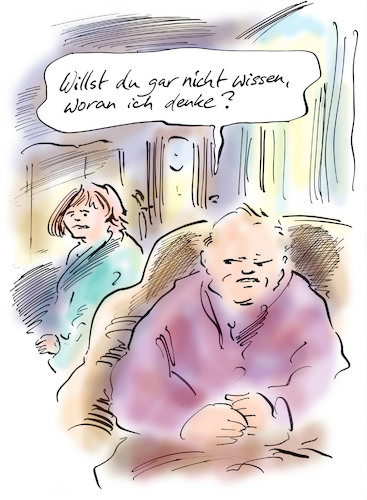 Willst du gar nicht wissen,
woran ich denke?